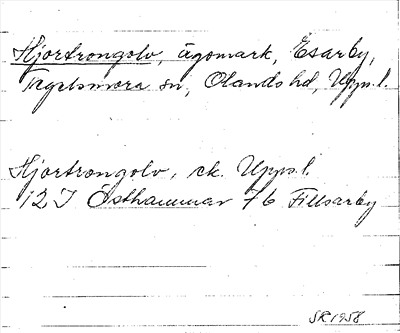 Hjortrongolv, ägomark, Esarby,
Tegelsmora sn, Olands hd, Uppl.
Hjortrongolv, ek. Uppl.
12 I Östhammar 7b Fillsarby
SR 1958